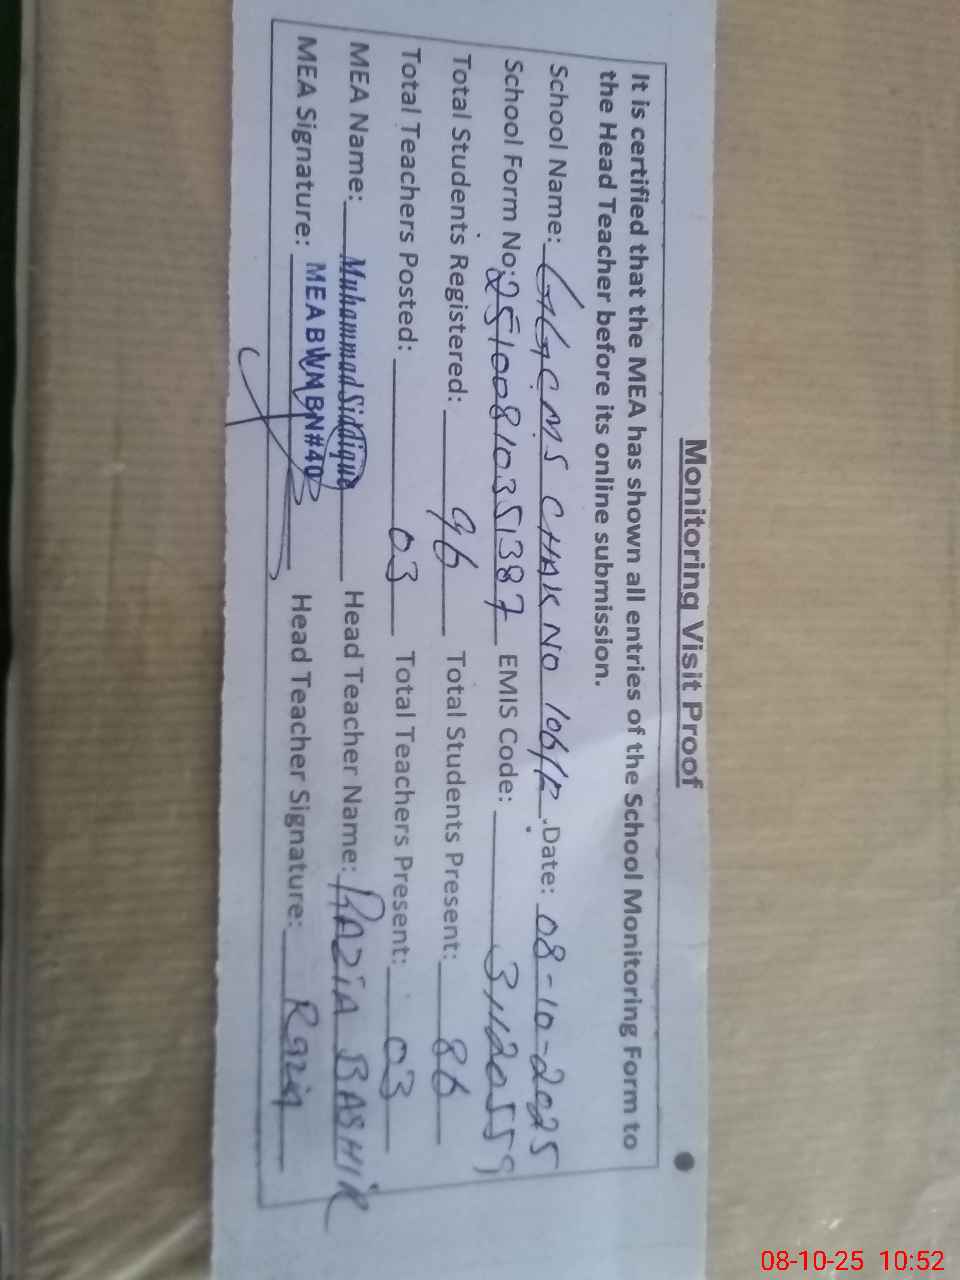 Monitoring Visit Proof
It is certified that the MEA has shown all entries of the School Monitoring Form to
the Head Teacher before its online submission.
School Name: GGCMS CHAK NO 106/R Date: 08-10-2025
School Form No: 251008103S1387 EMIS Code: 31120559
Total Students Registered: 96 Total Students Present: 86
Total Teachers Posted: 03 Total Teachers Present: 03
MEA Name: Muhammad Siddique Head Teacher Name: RAZIA BASHIR
MEA Signature: MEA BWN BN#40 Head Teacher Signature: Razia
08-10-25 10:52